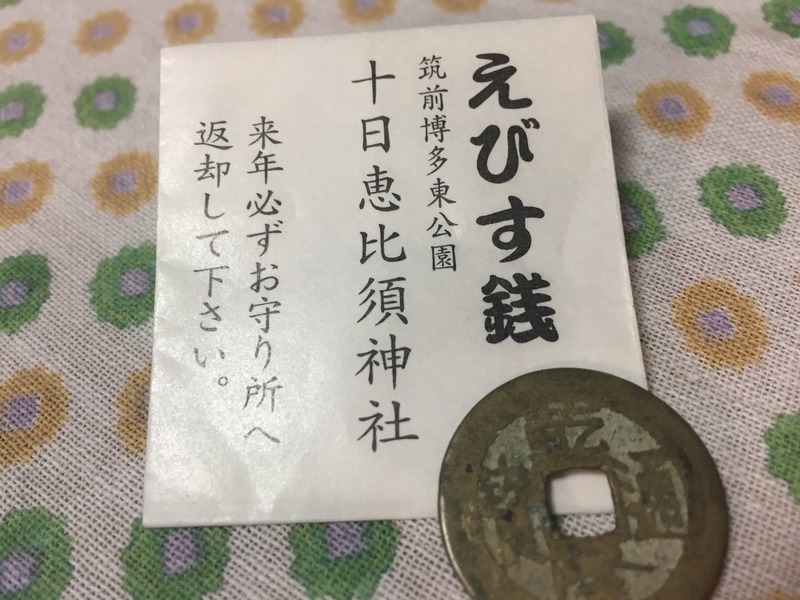 えびす銭
筑前博多東公園
十日恵比須神社
来年必ずお守り所へ
返却して下さい。
乾
通